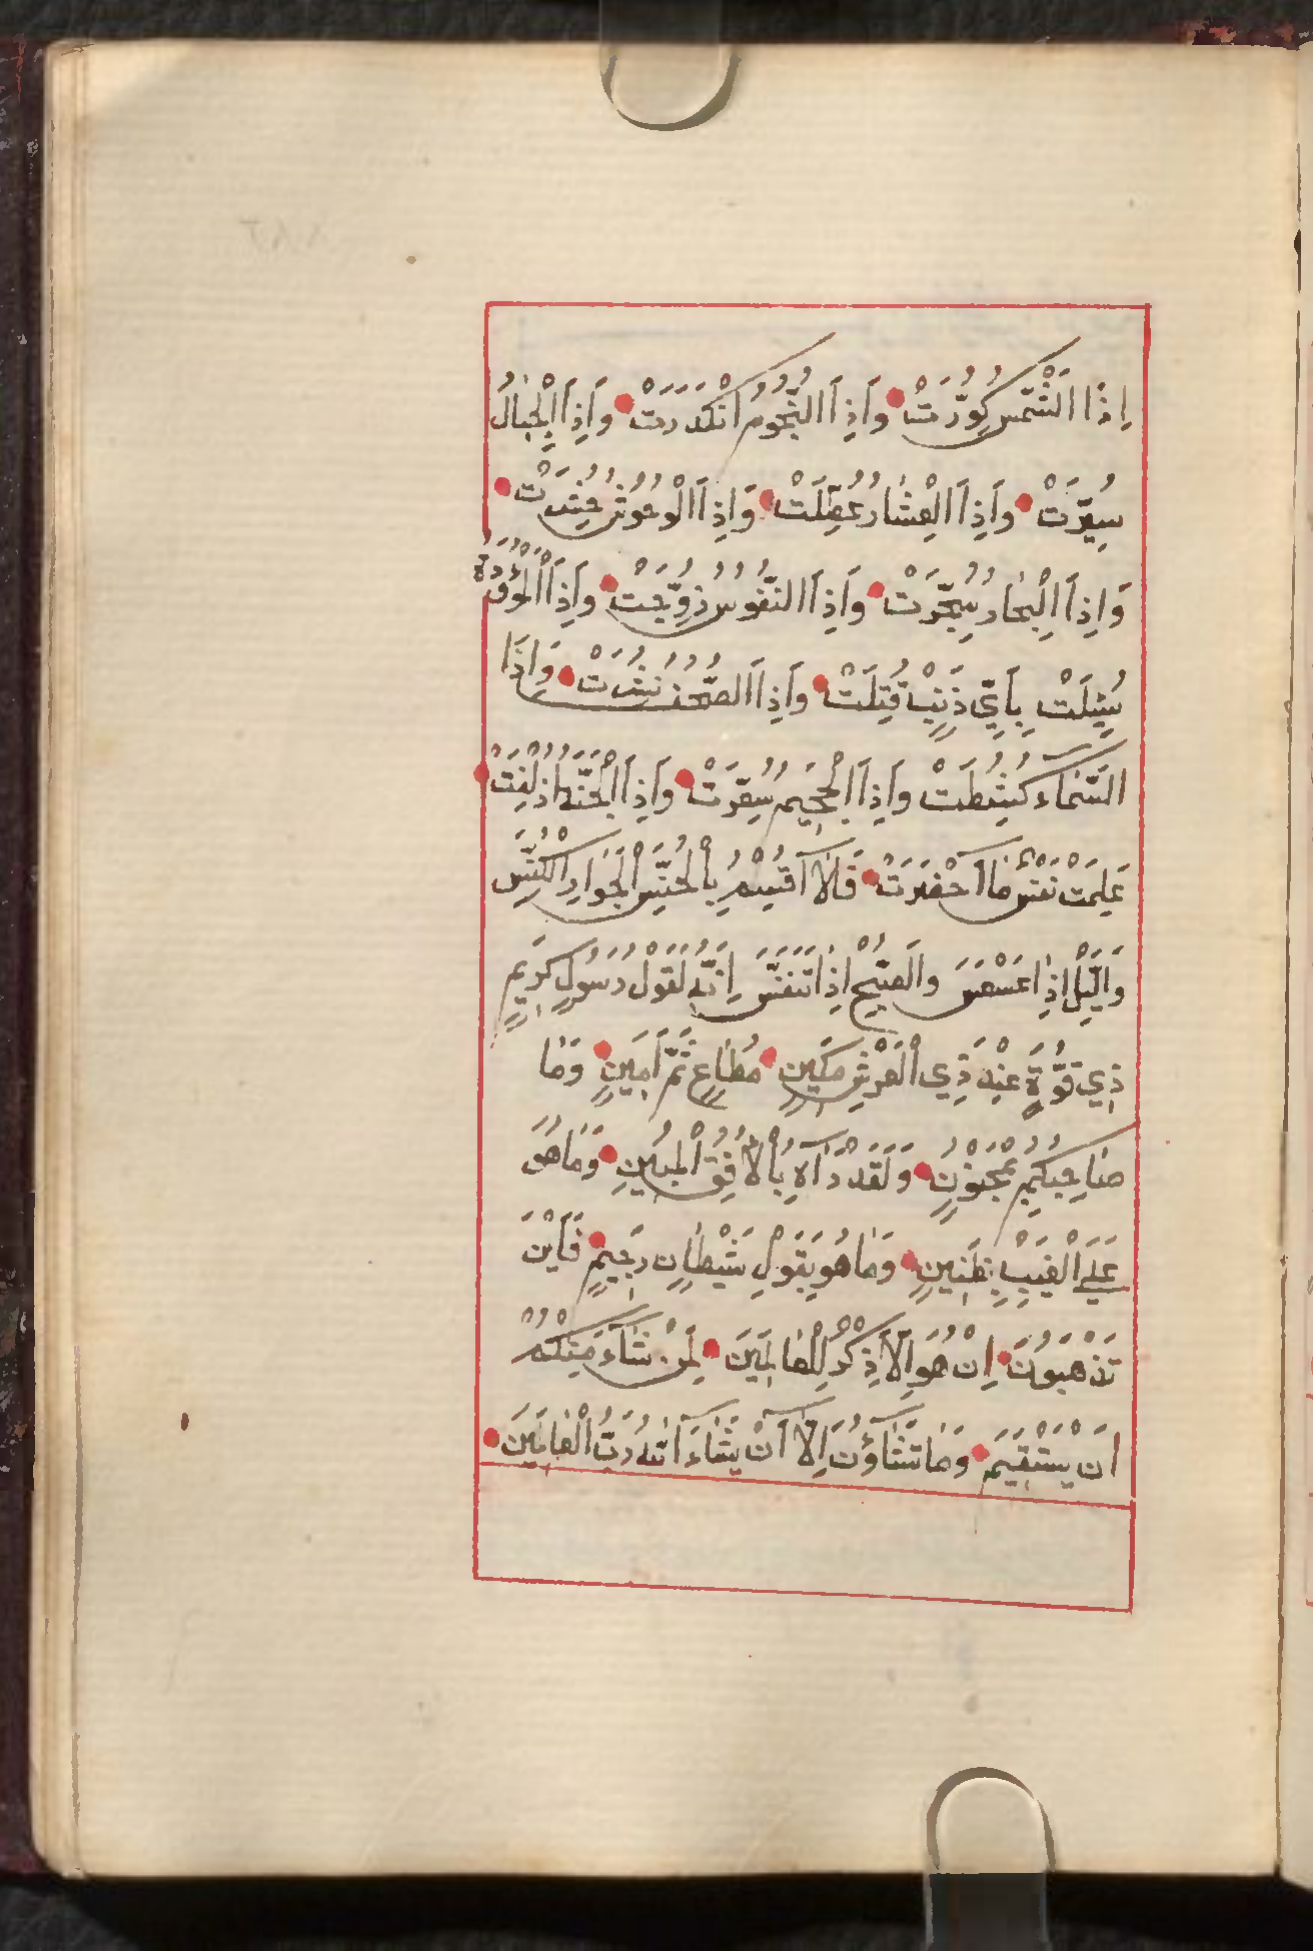 اِذَا الشَّمْسُ كُوِّرَتْ وَاِذَا النُّجُومُ انْكَدَرَتْ وَاِذَا الْجِبَالُ
سُيِّرَتْ وَاِذَا الْعِشَارُ عُطِّلَتْ وَاِذَا الْوُحُوشُ حُشِرَتْ
وَاِذَا الْبِحَارُ سُجِّرَتْ وَاِذَا النُّفُوسُ زُوِّجَتْ وَاِذَا الْمَوْؤُدَةُ
سُئِلَتْ بِاَيِّ ذَنْبٍ قُتِلَتْ وَاِذَا الصُّحُفُ نُشِرَتْ وَاِذَا
السَّمَاءُ كُشِطَتْ وَاِذَا الْجَحِيمُ سُعِّرَتْ وَاِذَا الْجَنَّةُ اُزْلِفَتْ
عَلِمَتْ نَفْسٌ مَا اَحْضَرَتْ فَلَا اُقْسِمُ بِالْخُنَّسِ الْجَوَارِ الْكُنَّسِ
وَالَّيْلِ اِذَا عَسْعَسَ وَالصُّبْحِ اِذَا تَنَفَّسَ اِنَّهُ لَقَوْلُ رَسُولٍ كَرِيمٍ
ذِي قُوَّةٍ عِنْدَ ذِي الْعَرْشِ مَكِينٍ مُطَاعٍ ثَمَّ اَمِينٍ وَمَا
صَاحِبُكُمْ بِمَجْنُونٍ وَلَقَدْ رَآهُ بِالْاُفُقِ الْمُبِينِ وَمَا هُوَ
عَلَى الْغَيْبِ بِظَنِينٍ وَمَا هُوَ بِقَوْلِ شَيْطَانٍ رَجِيمٍ فَاَيْنَ
تَذْهَبُونَ اِنْ هُوَ اِلَّا ذِكْرٌ لِلْعَالَمِينَ لِمَنْ شَاءَ مِنْكُمْ
اَنْ يَسْتَقِيمَ وَمَا تَشَاؤُنَ اِلَّا اَنْ يَشَاءَ اللّٰهُ رَبُّ الْعَالَمِينَ